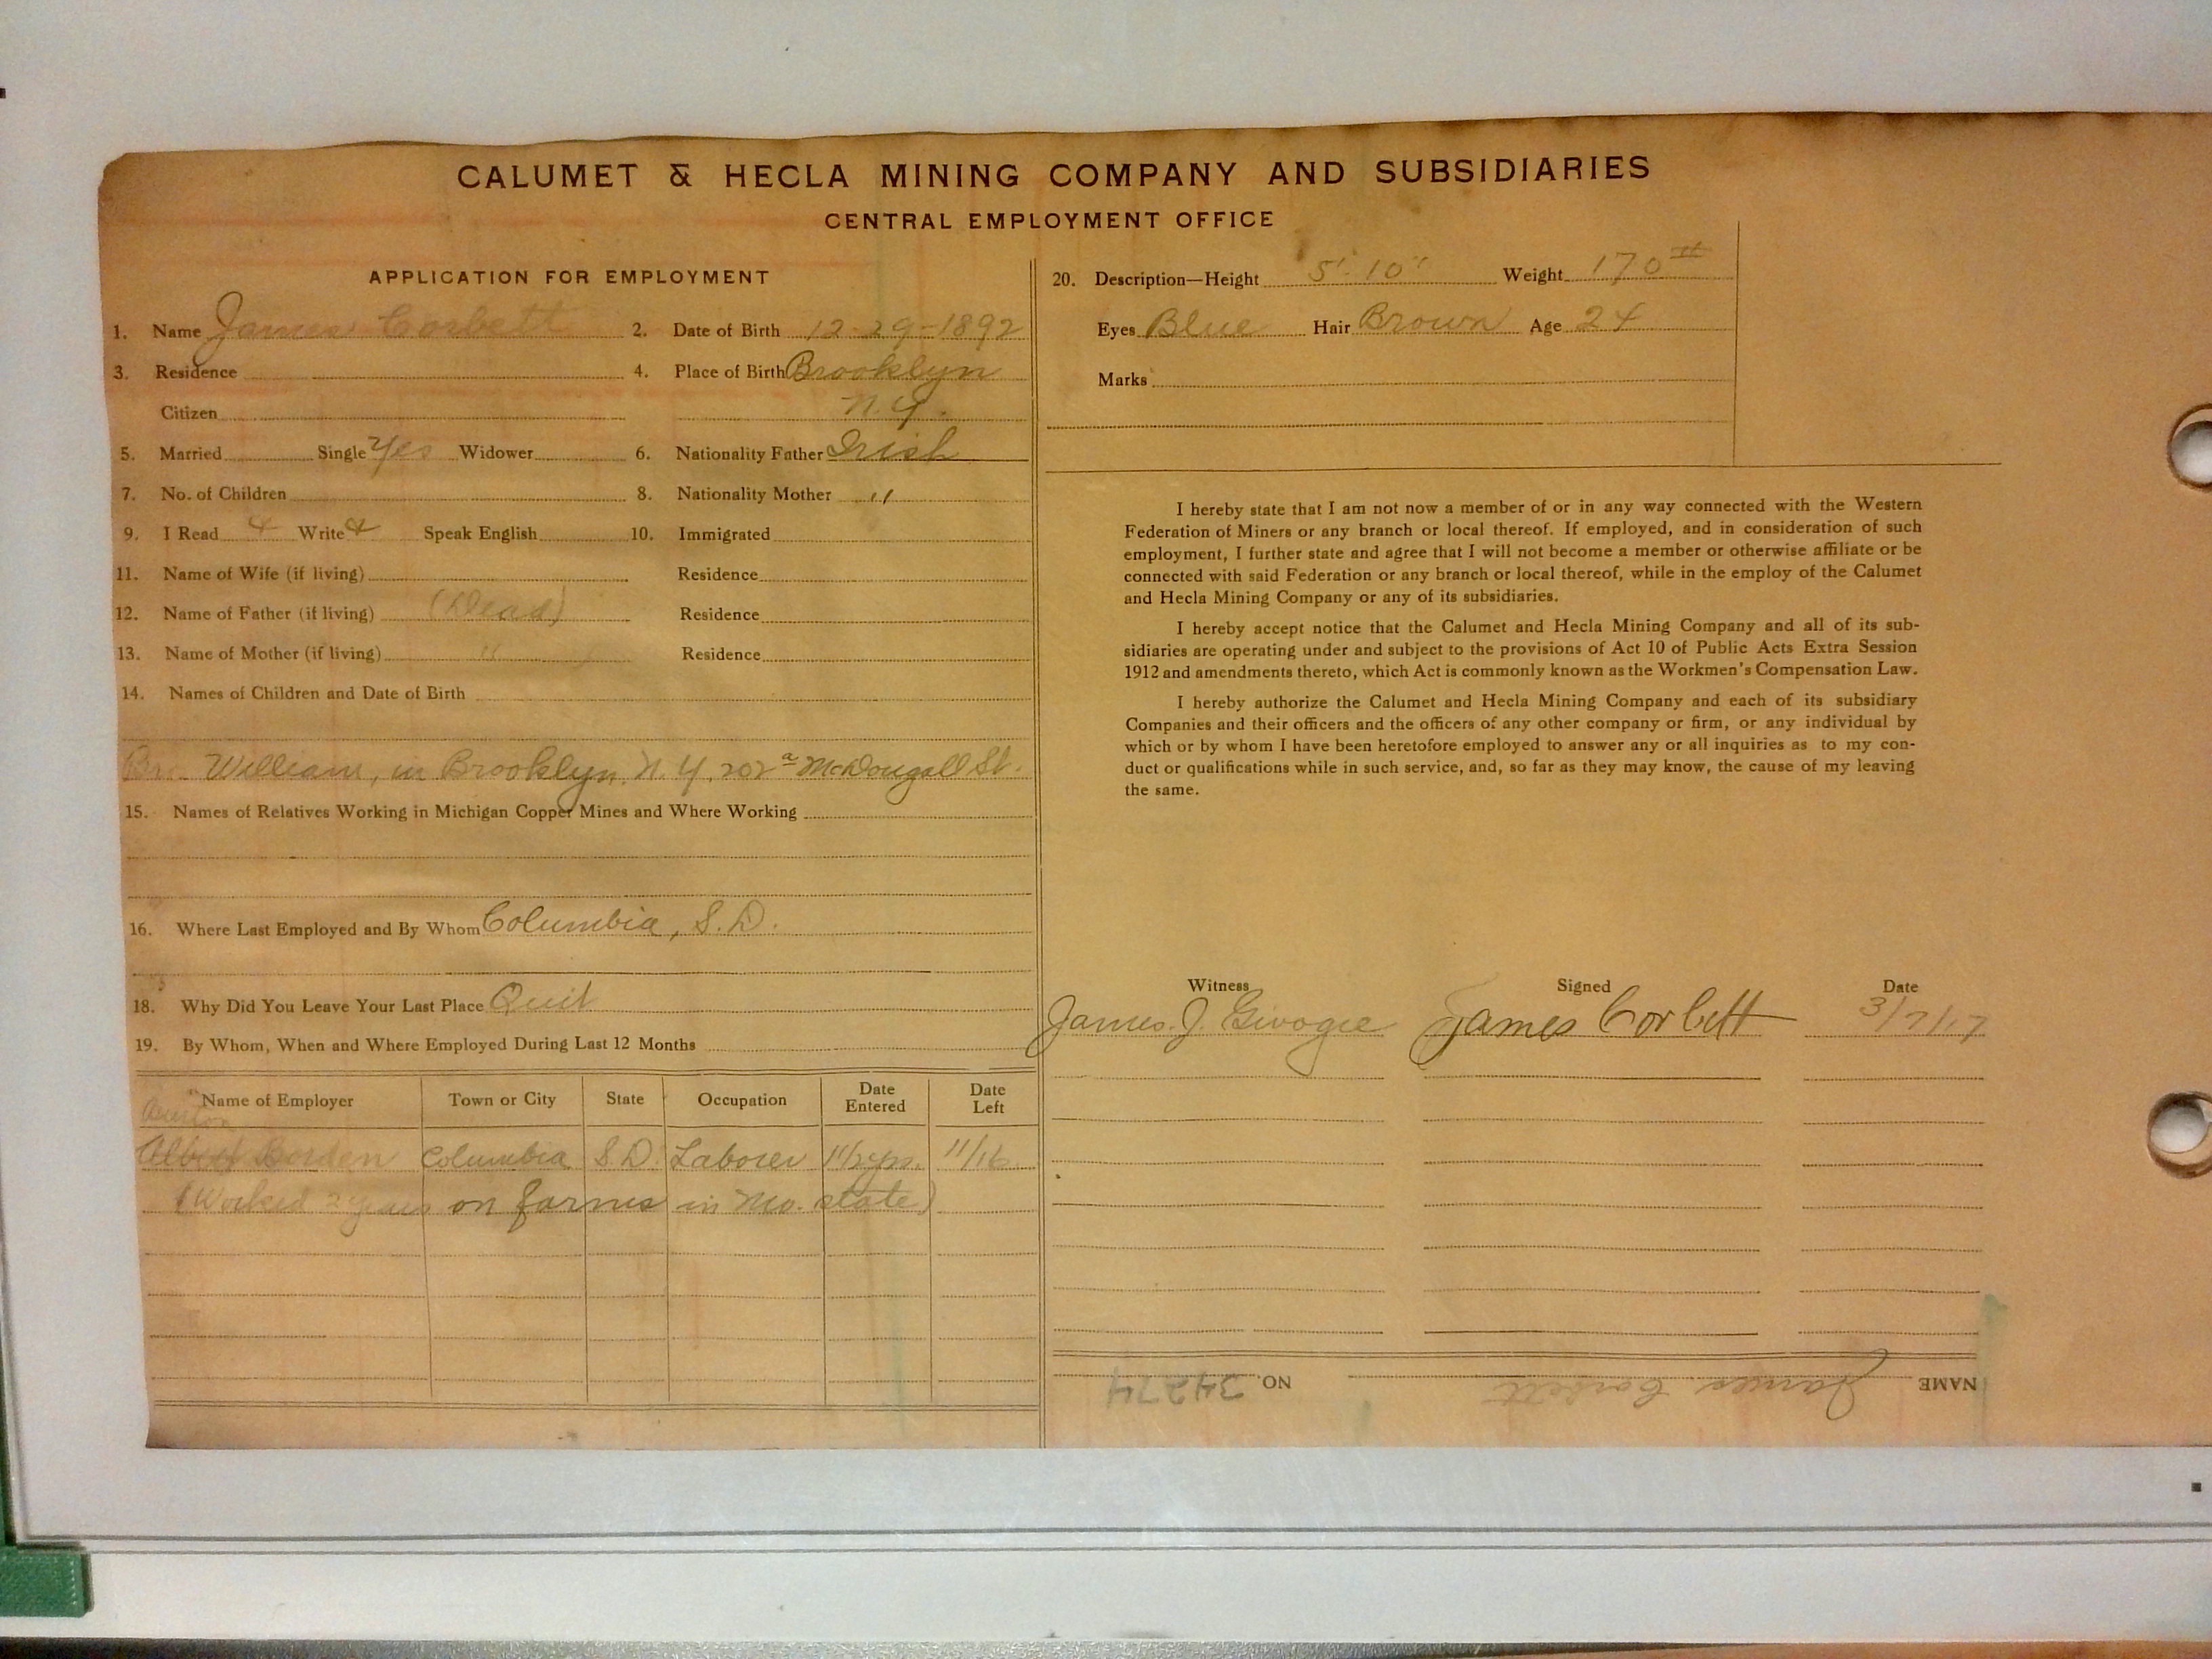 CALUMET & HECLA MINING COMPANY AND SUBSIDIARIES
CENTRAL EMPLOYMENT OFFICE
APPLICATION FOR EMPLOYMENT
1. Name James Corbett 2. Date of Birth 12-29-1892
3. Residence 4. Place of Birth Brooklyn
Citizen N.Y.
5. Married Single Yes Widower 6. Nationality Father Irish
7. No. of Children 8. Nationality Mother "
9. I Read & Write & Speak English 10. Immigrated
11. Name of Wife (if living) Residence
12. Name of Father (if living) (Dead) Residence
13. Name of Mother (if living) " Residence
14. Names of Children and Date of Birth
Br. William, in Brooklyn, N.Y. 202a McDougall St.
15. Names of Relatives Working in Michigan Copper Mines and Where Working
16. Where Last Employed and By Whom Columbia, S.D.
18. Why Did You Leave Your Last Place Quit
19. By Whom, When and Where Employed During Last 12 Months
Name of Employer Town or City State Occupation Date Entered Date Left
Albert Borden Columbia S.D. Laborer 1 1/2 yrs. 11/16
(Worked 2 years on farms in Mo. state)
20. Description—Height 5'-10" Weight 170#
Eyes Blue Hair Brown Age 24
Marks
I hereby state that I am not now a member of or in any way connected with the Western
Federation of Miners or any branch or local thereof. If employed, and in consideration of such
employment, I further state and agree that I will not become a member or otherwise affiliate or be
connected with said Federation or any branch or local thereof, while in the employ of the Calumet
and Hecla Mining Company or any of its subsidiaries.
I hereby accept notice that the Calumet and Hecla Mining Company and all of its sub-
sidiaries are operating under and subject to the provisions of Act 10 of Public Acts Extra Session
1912 and amendments thereto, which Act is commonly known as the Workmen's Compensation Law.
I hereby authorize the Calumet and Hecla Mining Company and each of its subsidiary
Companies and their officers and the officers of any other company or firm, or any individual by
which or by whom I have been heretofore employed to answer any or all inquiries as to my con-
duct or qualifications while in such service, and, so far as they may know, the cause of my leaving
the same.
Witness Signed Date
James J. James Corbett 3/7/17
NAME James Corbett NO. 34274